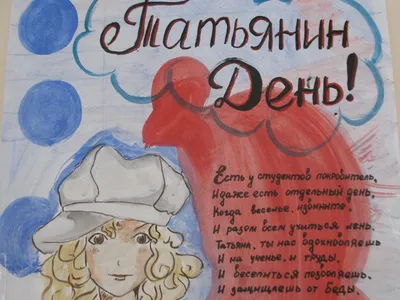 Татьянин
День!
Есть у студентов покровитель,
И даже есть отдельный день,
Когда веселье, извините,
И разом всем учиться лень.
Татьяна, ты нас вдохновляешь
И на ученье, и труды,
И беситься позволяешь,
И защищаешь от беды.